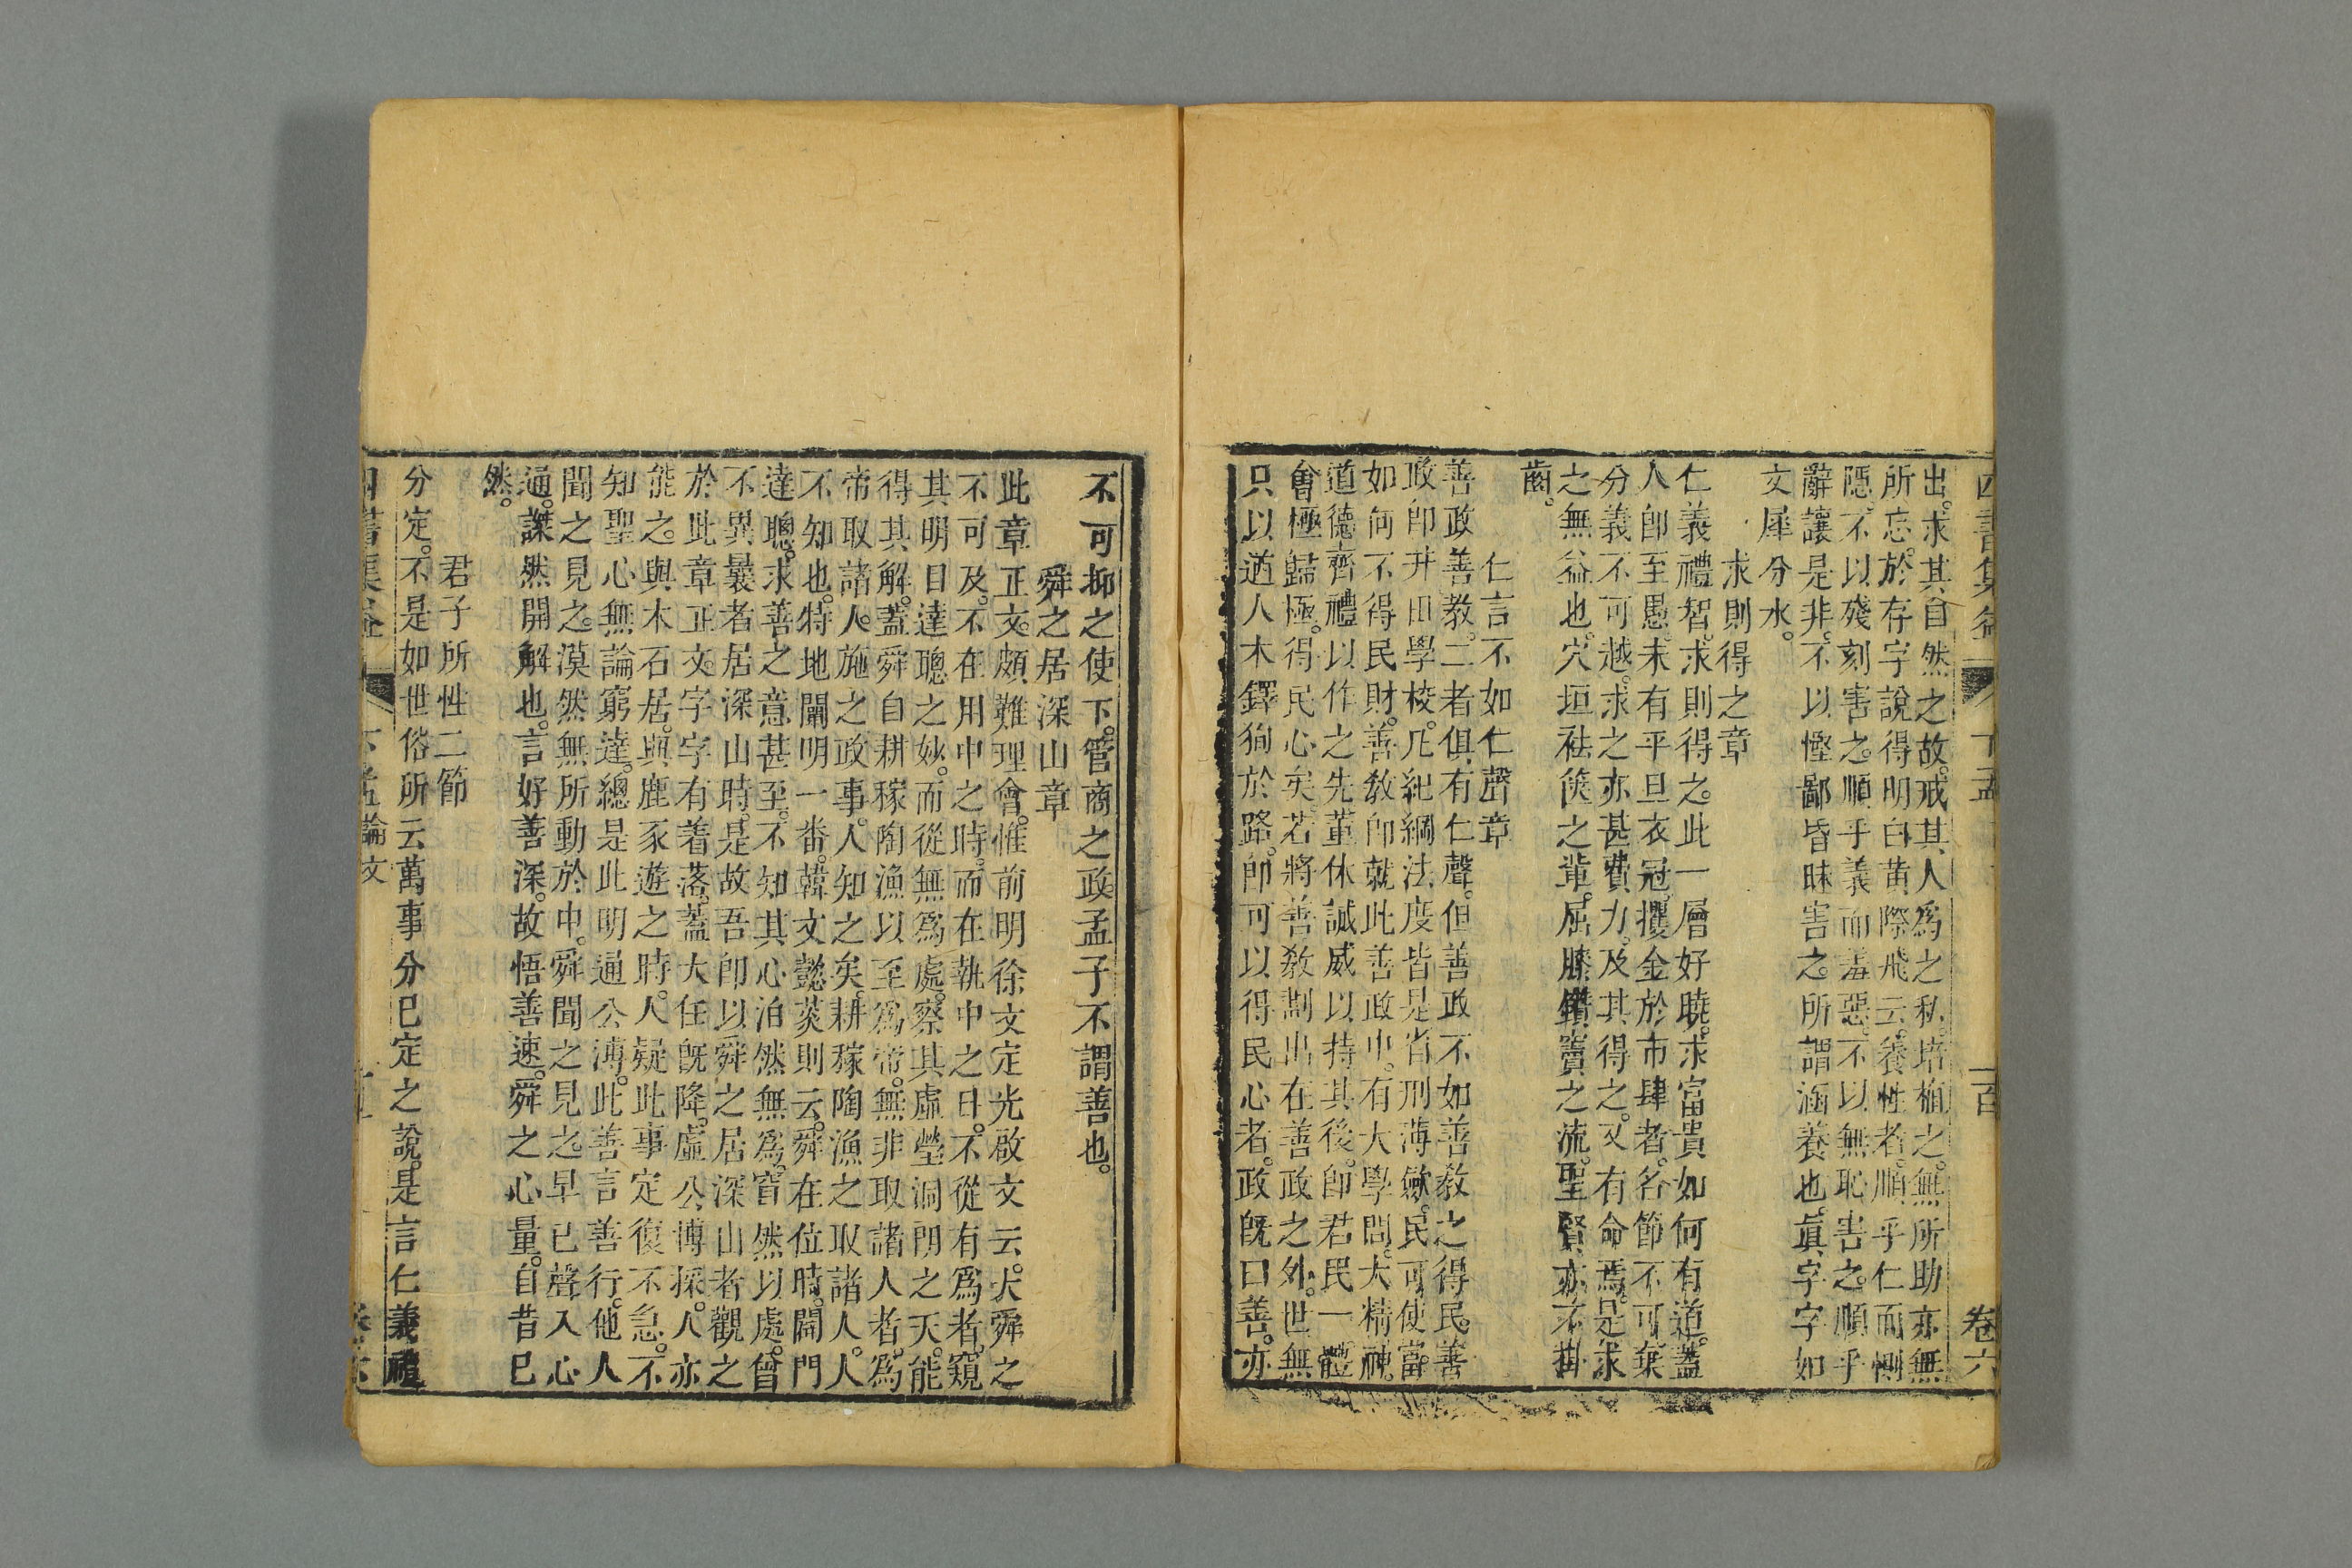 出。求其自然之故。戒其人爲之私。培植之。無所助亦無
所忘。於存字說得明白黄際飛云。養性者。順乎仁而惻
隱。不以殘刻害之。順乎義而羞惡。不以無恥害之。順乎
辭讓是非。不以慳鄙昏昧害之。所謂涵養也。眞字字如
文犀分水。
求則得之章
仁義禮智。求則得之。此一層好曉。求富貴如何有道。蓋
人卽至愚。未有平旦衣冠。攫金於市肆者。名節不可棄
分義不可越。求之亦甚費力。及其得之。又有命焉。是求
之無益也。穴垣祛篋之輩。屈膝鑽竇之流。聖賢亦不掛
齒。
仁言不如仁聲章
善政善敎。二者俱有仁聲。但善政不如善敎之得民。善
政卽井田學校。凡紀綱法度皆是。省刑薄歛。民可使富。
如何不得民財。善敎卽就此善政中。有大學問。大精神。
道德齊禮以作之先。董休誠威以持其後。卽君民一體
會極歸極。得民心矣。若將善敎劃出在善政之外。世無
只以遒人木鐸狥於路。卽可以得民心者。政旣曰善。亦
不可抑之使下。管商之政孟子不謂善也。
舜之居深山章
此章正文。頗難理會。惟前明徐文定光啟文云。大舜之
不可及。不在用中之時。而在執中之日。不從有爲者。窺
其明目達聰之妙。而從無爲處。察其虛瑩洞朗之天。能
得其解。蓋舜自耕稼陶漁以至爲帝。無非取諸人者。爲
帝取諸人。施之政事。人知之矣。耕稼陶漁之取諸人。人
不知也。特地闡明一番。韓文懿菼則云。舜在位時。闢門
達聰。求善之意甚至。不知其心泊然無爲。窅然以處。曾
不異曩者居深山時。是故吾卽以舜之居深山者觀之
於此章正文。字字有着落。蓋大任旣降。虛公博採。人亦
能之。與木石居。與鹿豕遊之時。人疑此事定復不急。不
知聖心無論窮達。總是此明通公溥。此善言善行。他人
聞之見之。漠然無所動於中。舜聞之見之。早已聲入心
通。謋然開解也。言好善深。故悟善速。舜之心量。自昔已
然。
君子所性二節
分定。不是如世俗所云萬事分已定之說。是言仁義禮